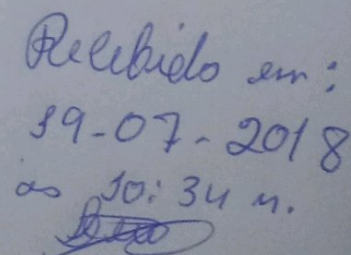 Recebido em:
19-07-2018
às 10:34 h.